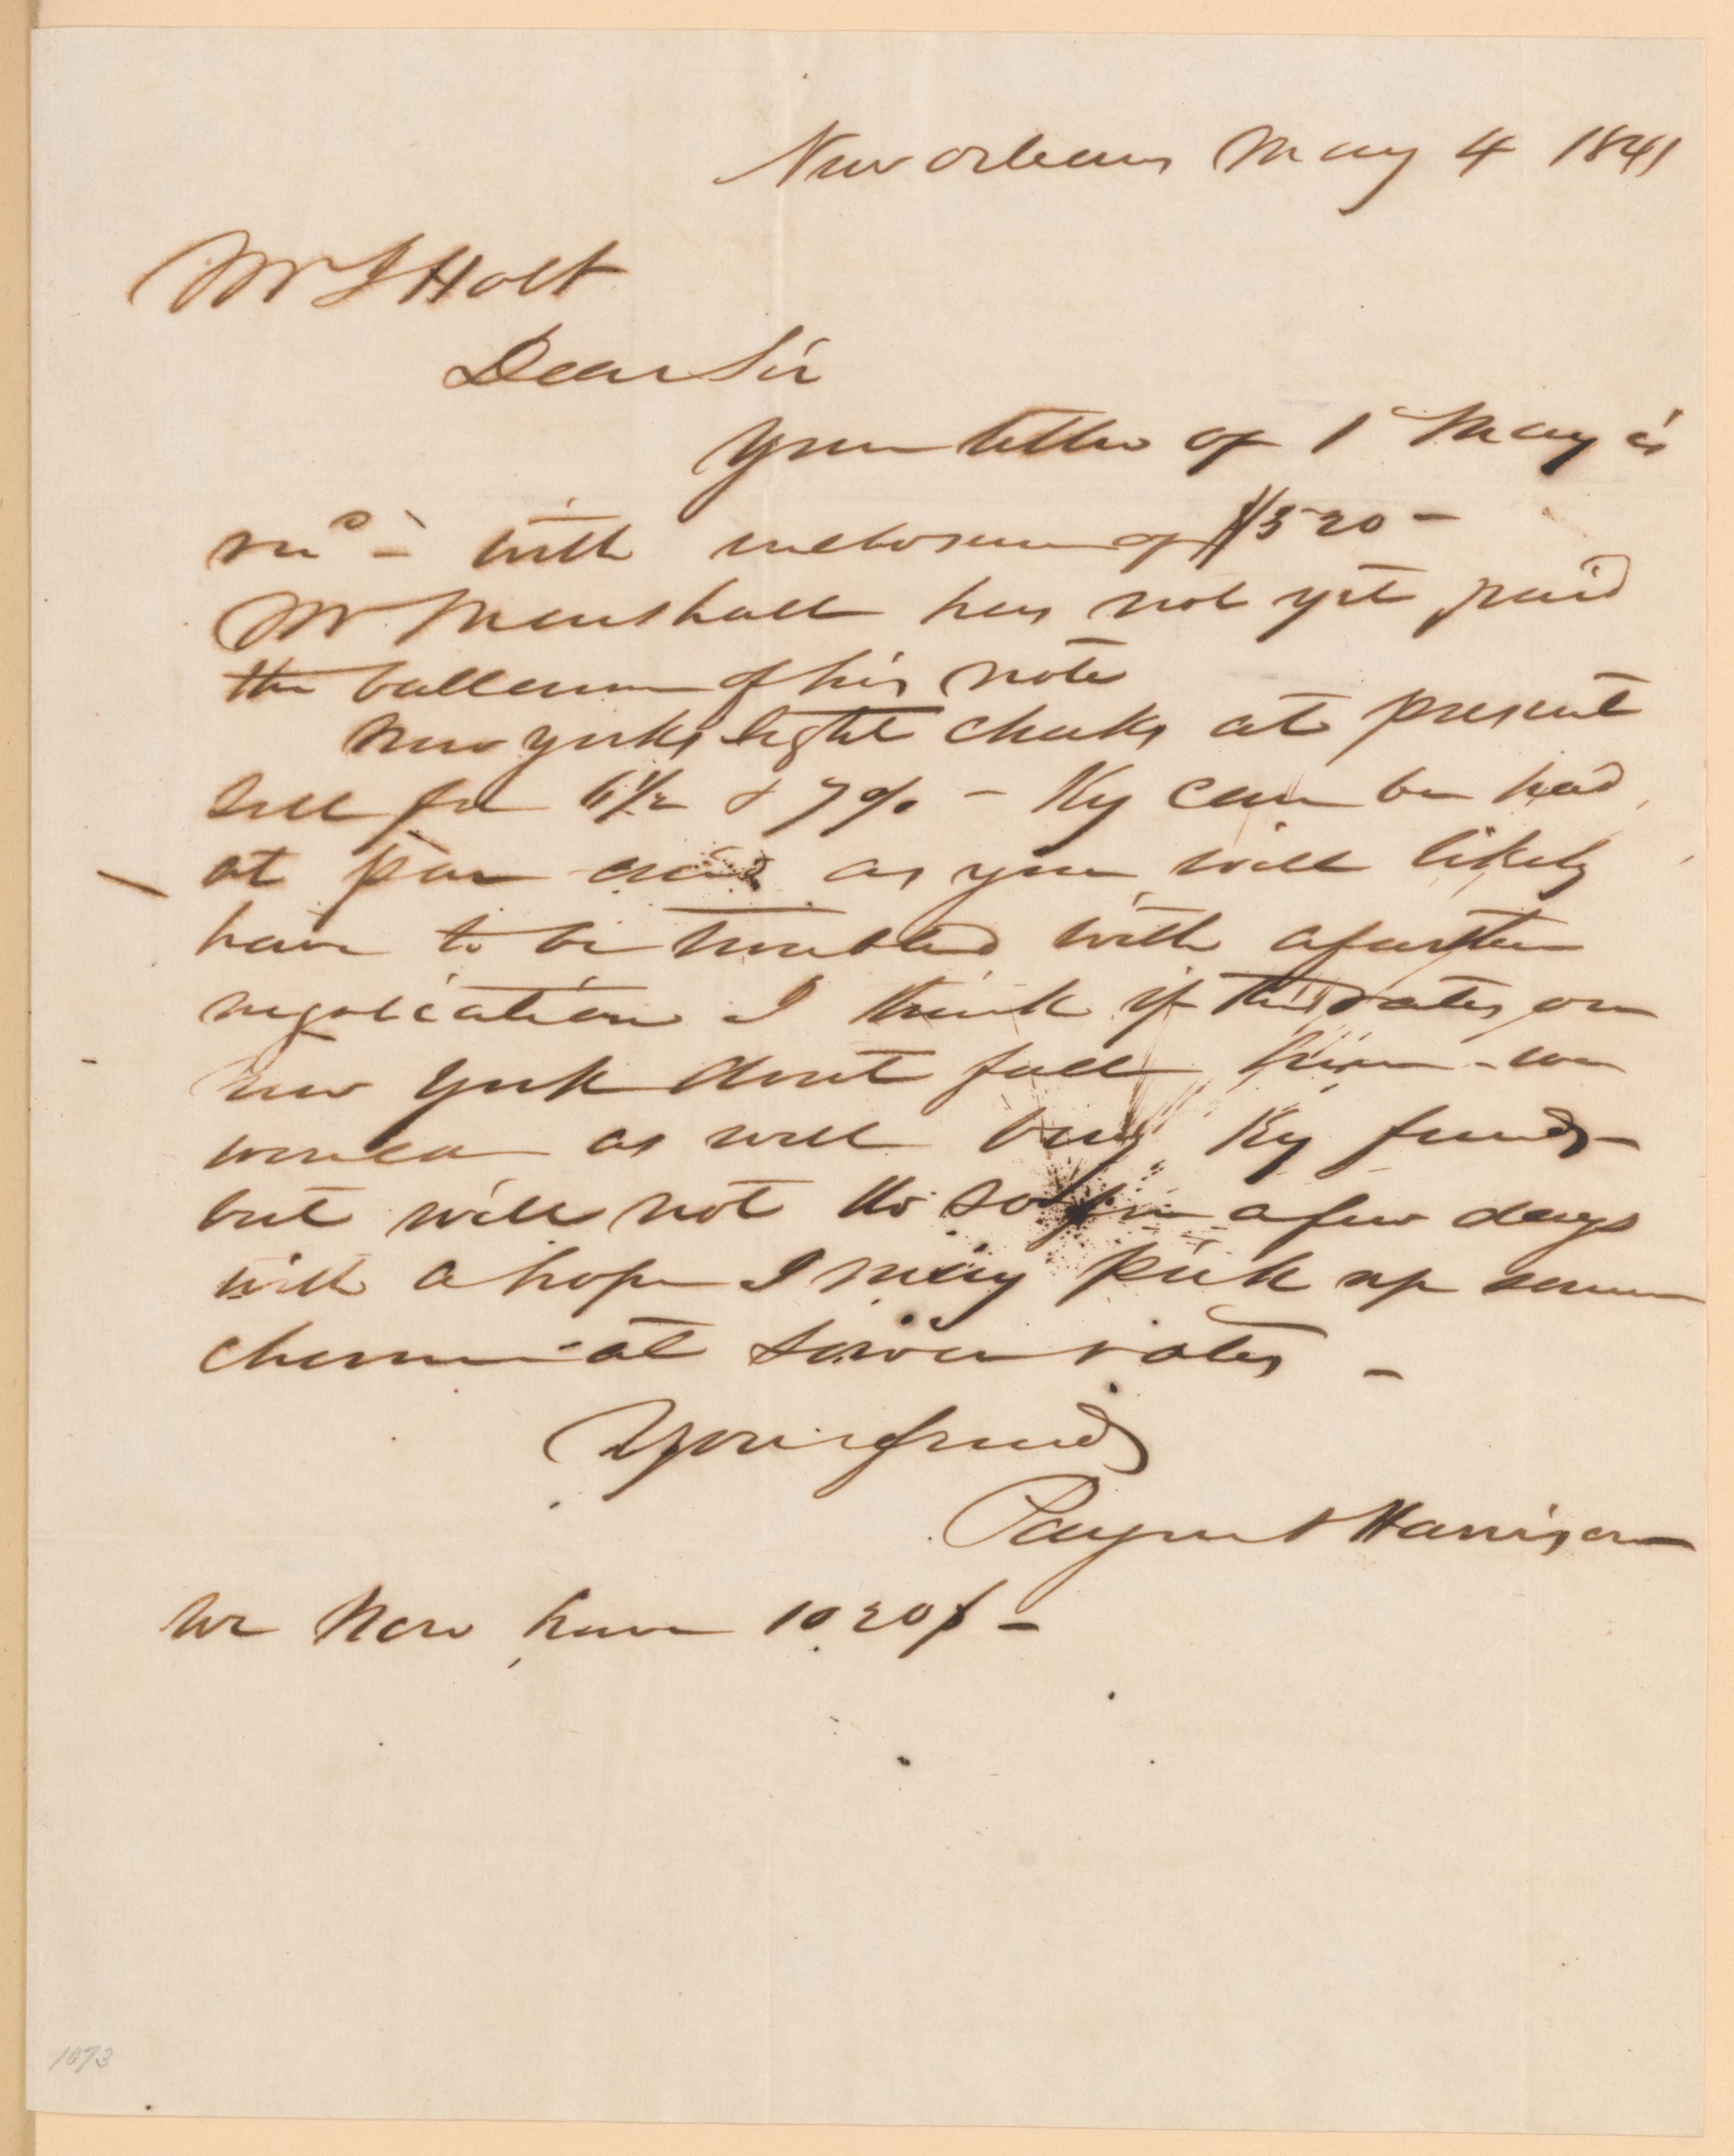 New Orleans May 4 1841
Mr J Holt
Dear Sir
Your letter of 1 May is
recd - with inclosure of $520 -
Mr Marshall has not yet paid
the ballance of his note
New York sight checks at present
sell for 6½ & 7% - Ky can be had
at par and as you will likely
have to be troubled with a further
negotiation I think if the rates on
New York dont fall here - we
would as well buy Ky funds -
but will not do so for a few days
with a hope I may pick up some
chance at lower rates -
Your friend
Payne & Harrison
We now have 1020$ -
1073